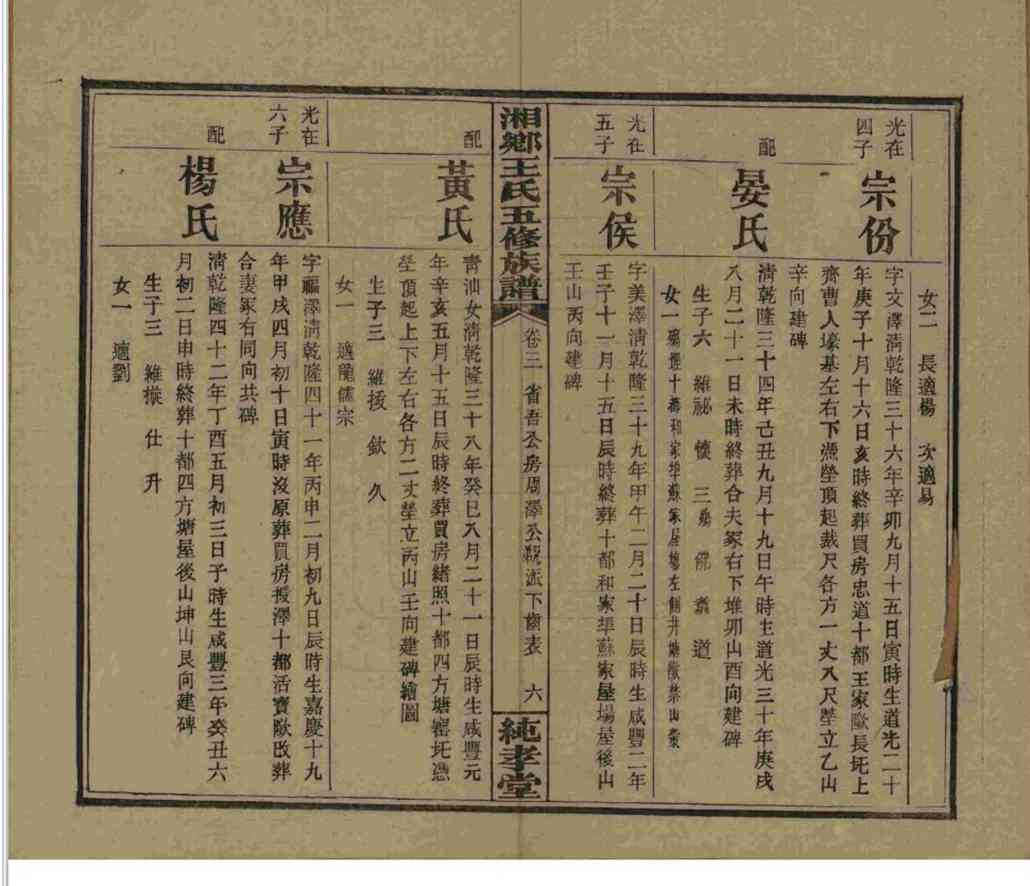 女二 長適楊 次適易
光在四子
宗份
字文澤清乾隆三十六年辛卯九月十五日寅時生道光二十
年庚子十月十六日亥時終葬買房忠道十都王家歐長坵上
齊曹人壕基左右下憑塋頂起裁尺各方一丈八尺塋立乙山
辛向建碑
配
晏氏
清乾隆三十四年己丑九月十九日午時生道光三十年庚戌
八月二十一日未時終葬合夫冢右下堆卯山酉向建碑
生子六 維祕 懷 三 道
女一
光在五子
宗侯
字美澤清乾隆三十九年甲午二月二十日辰時生咸豐二年
壬子十一月十五日辰時終葬十都和家埠蘇家屋場屋後山
壬山丙向建碑
湘鄉王氏五修族譜
卷三 省吾公房周澤公派下齒表 六
純孝堂
配
黃氏
青汕女清乾隆三十八年癸巳八月二十一日辰時生咸豐元
年辛亥五月十五日辰時終葬買房緒照十都四方塘窑坵憑
塋頂起上下左右各方二丈塋立丙山壬向建碑繪圖
生子三 維援 欽 久
女一 適龍儒宗
光在六子
宗應
字福澤清乾隆四十一年丙申二月初九日辰時生嘉慶十九
年甲戌四月初十日寅時沒原葬買房授澤十都活寶歐改葬
合妻冢右同向共碑
配
楊氏
清乾隆四十二年丁酉五月初三日子時生咸豐三年癸丑六
月初二日申時終葬十都四方塘屋後山坤山艮向建碑
生子三 維 仕 升
女一 適劉